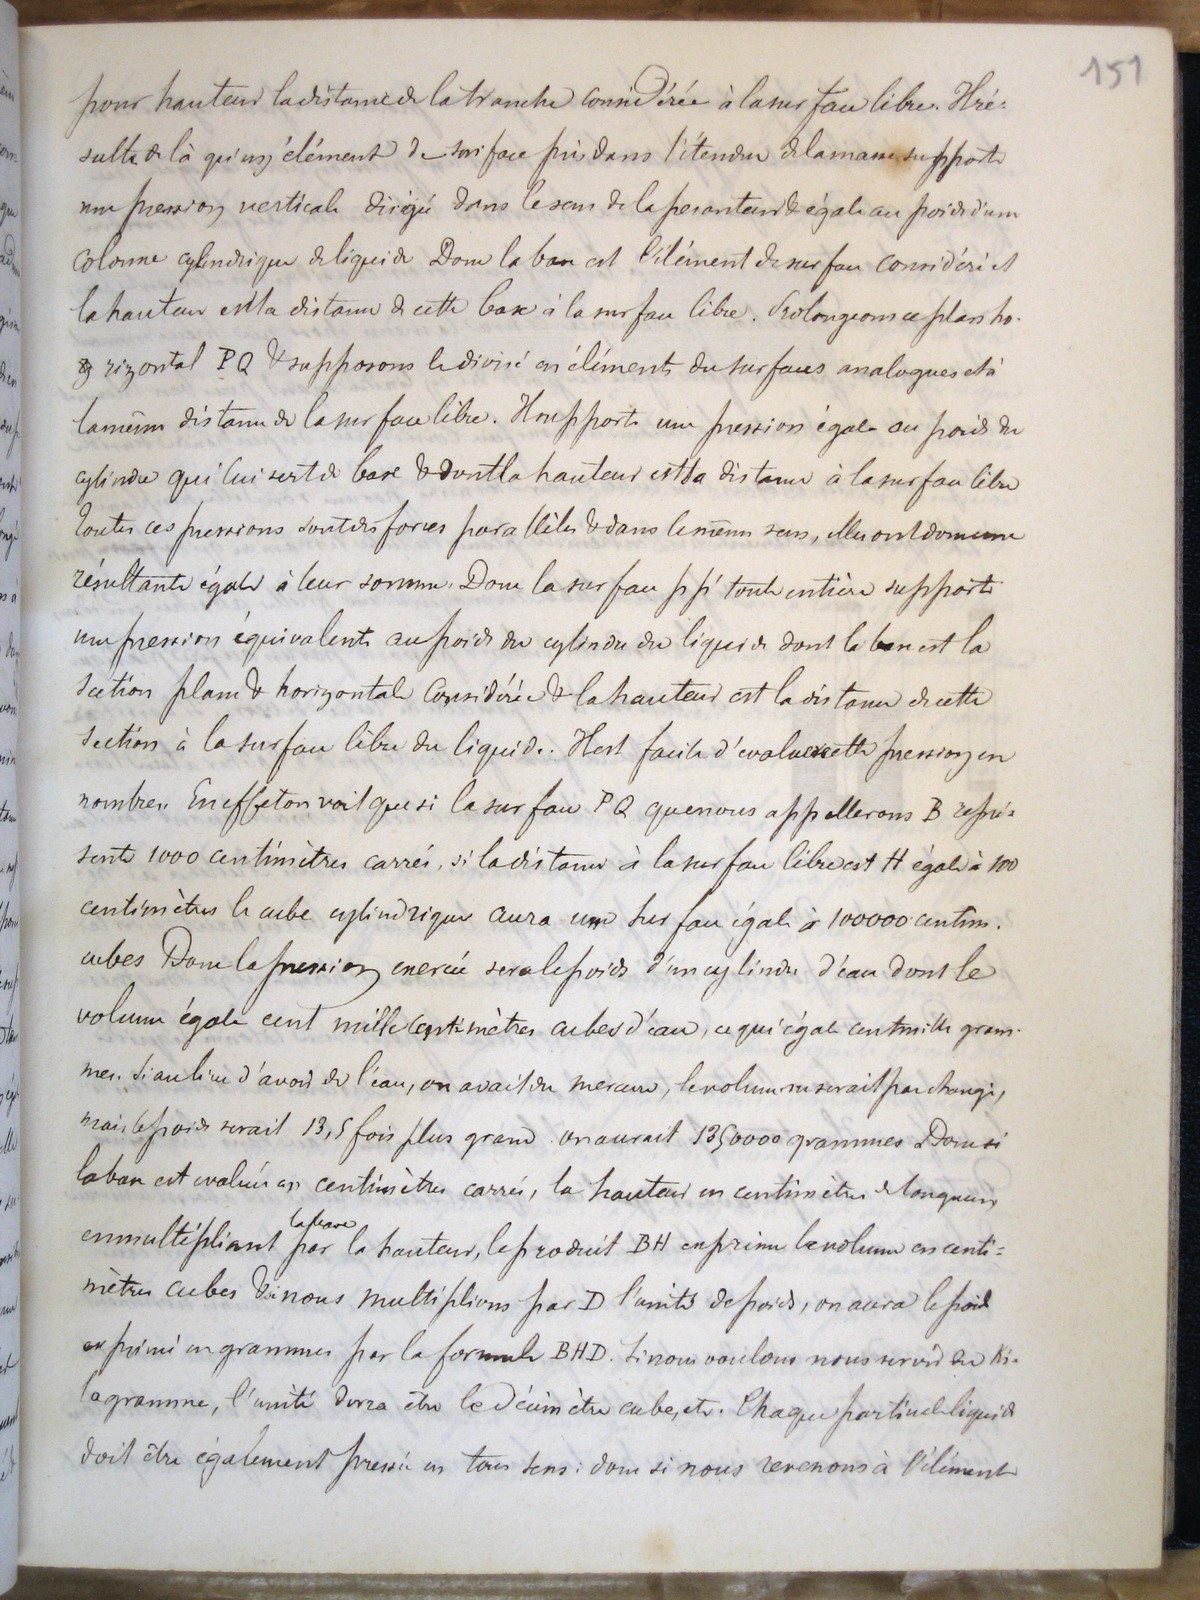 151
pour hauteur la distance de la tranche considérée à la surface libre. Il ré-
sulte de là qu'un élément de surface pris dans l'étendue de la masse supporte
une pression verticale dirigée dans le sens de la pesanteur & égale au poids d'une
colonne cylindrique de liquide Dont la base est l'élément de surface considéré et
la hauteur est la distance de cette base à la surface libre. Prolongeons ce plan ho-
rizontal PQ & supposons le divisé en éléments de surfaces analogues et à
la même distance de la surface libre. Il supporte une pression égale au poids du
cylindre qui lui sert de base & dont la hauteur est la distance à la surface libre
Toutes ces pressions sont des forces parallèles & dans le même sens, elles ont donc une
résultante égale à leur somme. Donc la surface pp' toute entière supporte
une pression équivalente au poids du cylindre du liquide dont la base est la
section plane & horizontale considérée & la hauteur est la distance de cette
section à la surface libre du liquide. Il est facile d'évaluer cette pression en
nombres. En effet on voit que si la surface PQ que nous appellerons B repré-
sente 1000 centimètres carrés, si la distance à la surface libre est H égale à 100
centimètres le cube cylindrique aura une surface égale à 100000 centim.
cubes Donc la pression exercée sera le poids d'un cylindre d'eau dont le
volume égale cent mille centimètres cubes d'eau, ce qui égale cent mille gram-
mes. Si au lieu d'avoir de l'eau, on avait du mercure, le volume ne serait pas changé,
mais le poids serait 13,5 fois plus grand. on aurait 1350000 grammes Donc si
la base est évaluée en centimètres carrés, la hauteur en centimètres de longueur
en multipliant la base par la hauteur, le produit BH exprime le volume en centi-
mètres cubes & si nous multiplions par D l'unité de poids, on aura le poids
exprimé en grammes par la formule BHD. Si nous voulons nous servir du ki-
logramme, l'unité devra être le décimètre cube, etc. Chaque particule liquide
doit être également pressée en tous sens : donc si nous revenons à l'élément